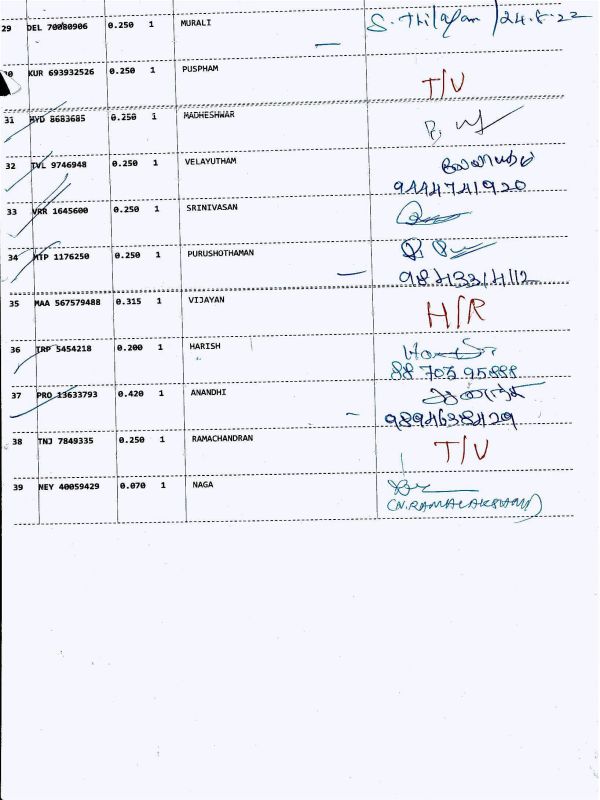 29 DEL 70080906 0.250 1 MURALI S. Thilagam / 24.8.22
KUR 693932526 0.250 1 PUSPHAM T/V
31 HYD 8683685 0.250 1 MADHESHWAR
32 TVL 9746948 0.250 1 VELAYUTHAM வேலாயுதம்
9444741920
33 VRR 1645600 0.250 1 SRINIVASAN
34 MTP 1176250 0.250 1 PURUSHOTHAMAN
35 MAA 567579488 0.315 1 VIJAYAN H/R
36 TRP 5454218 0.200 1 HARISH
88 703 95888
37 PRO 13633793 0.420 1 ANANDHI ஆனந்தி
9894638429
38 TNJ 7849335 0.250 1 RAMACHANDRAN T/V
39 NEY 40059429 0.070 1 NAGA